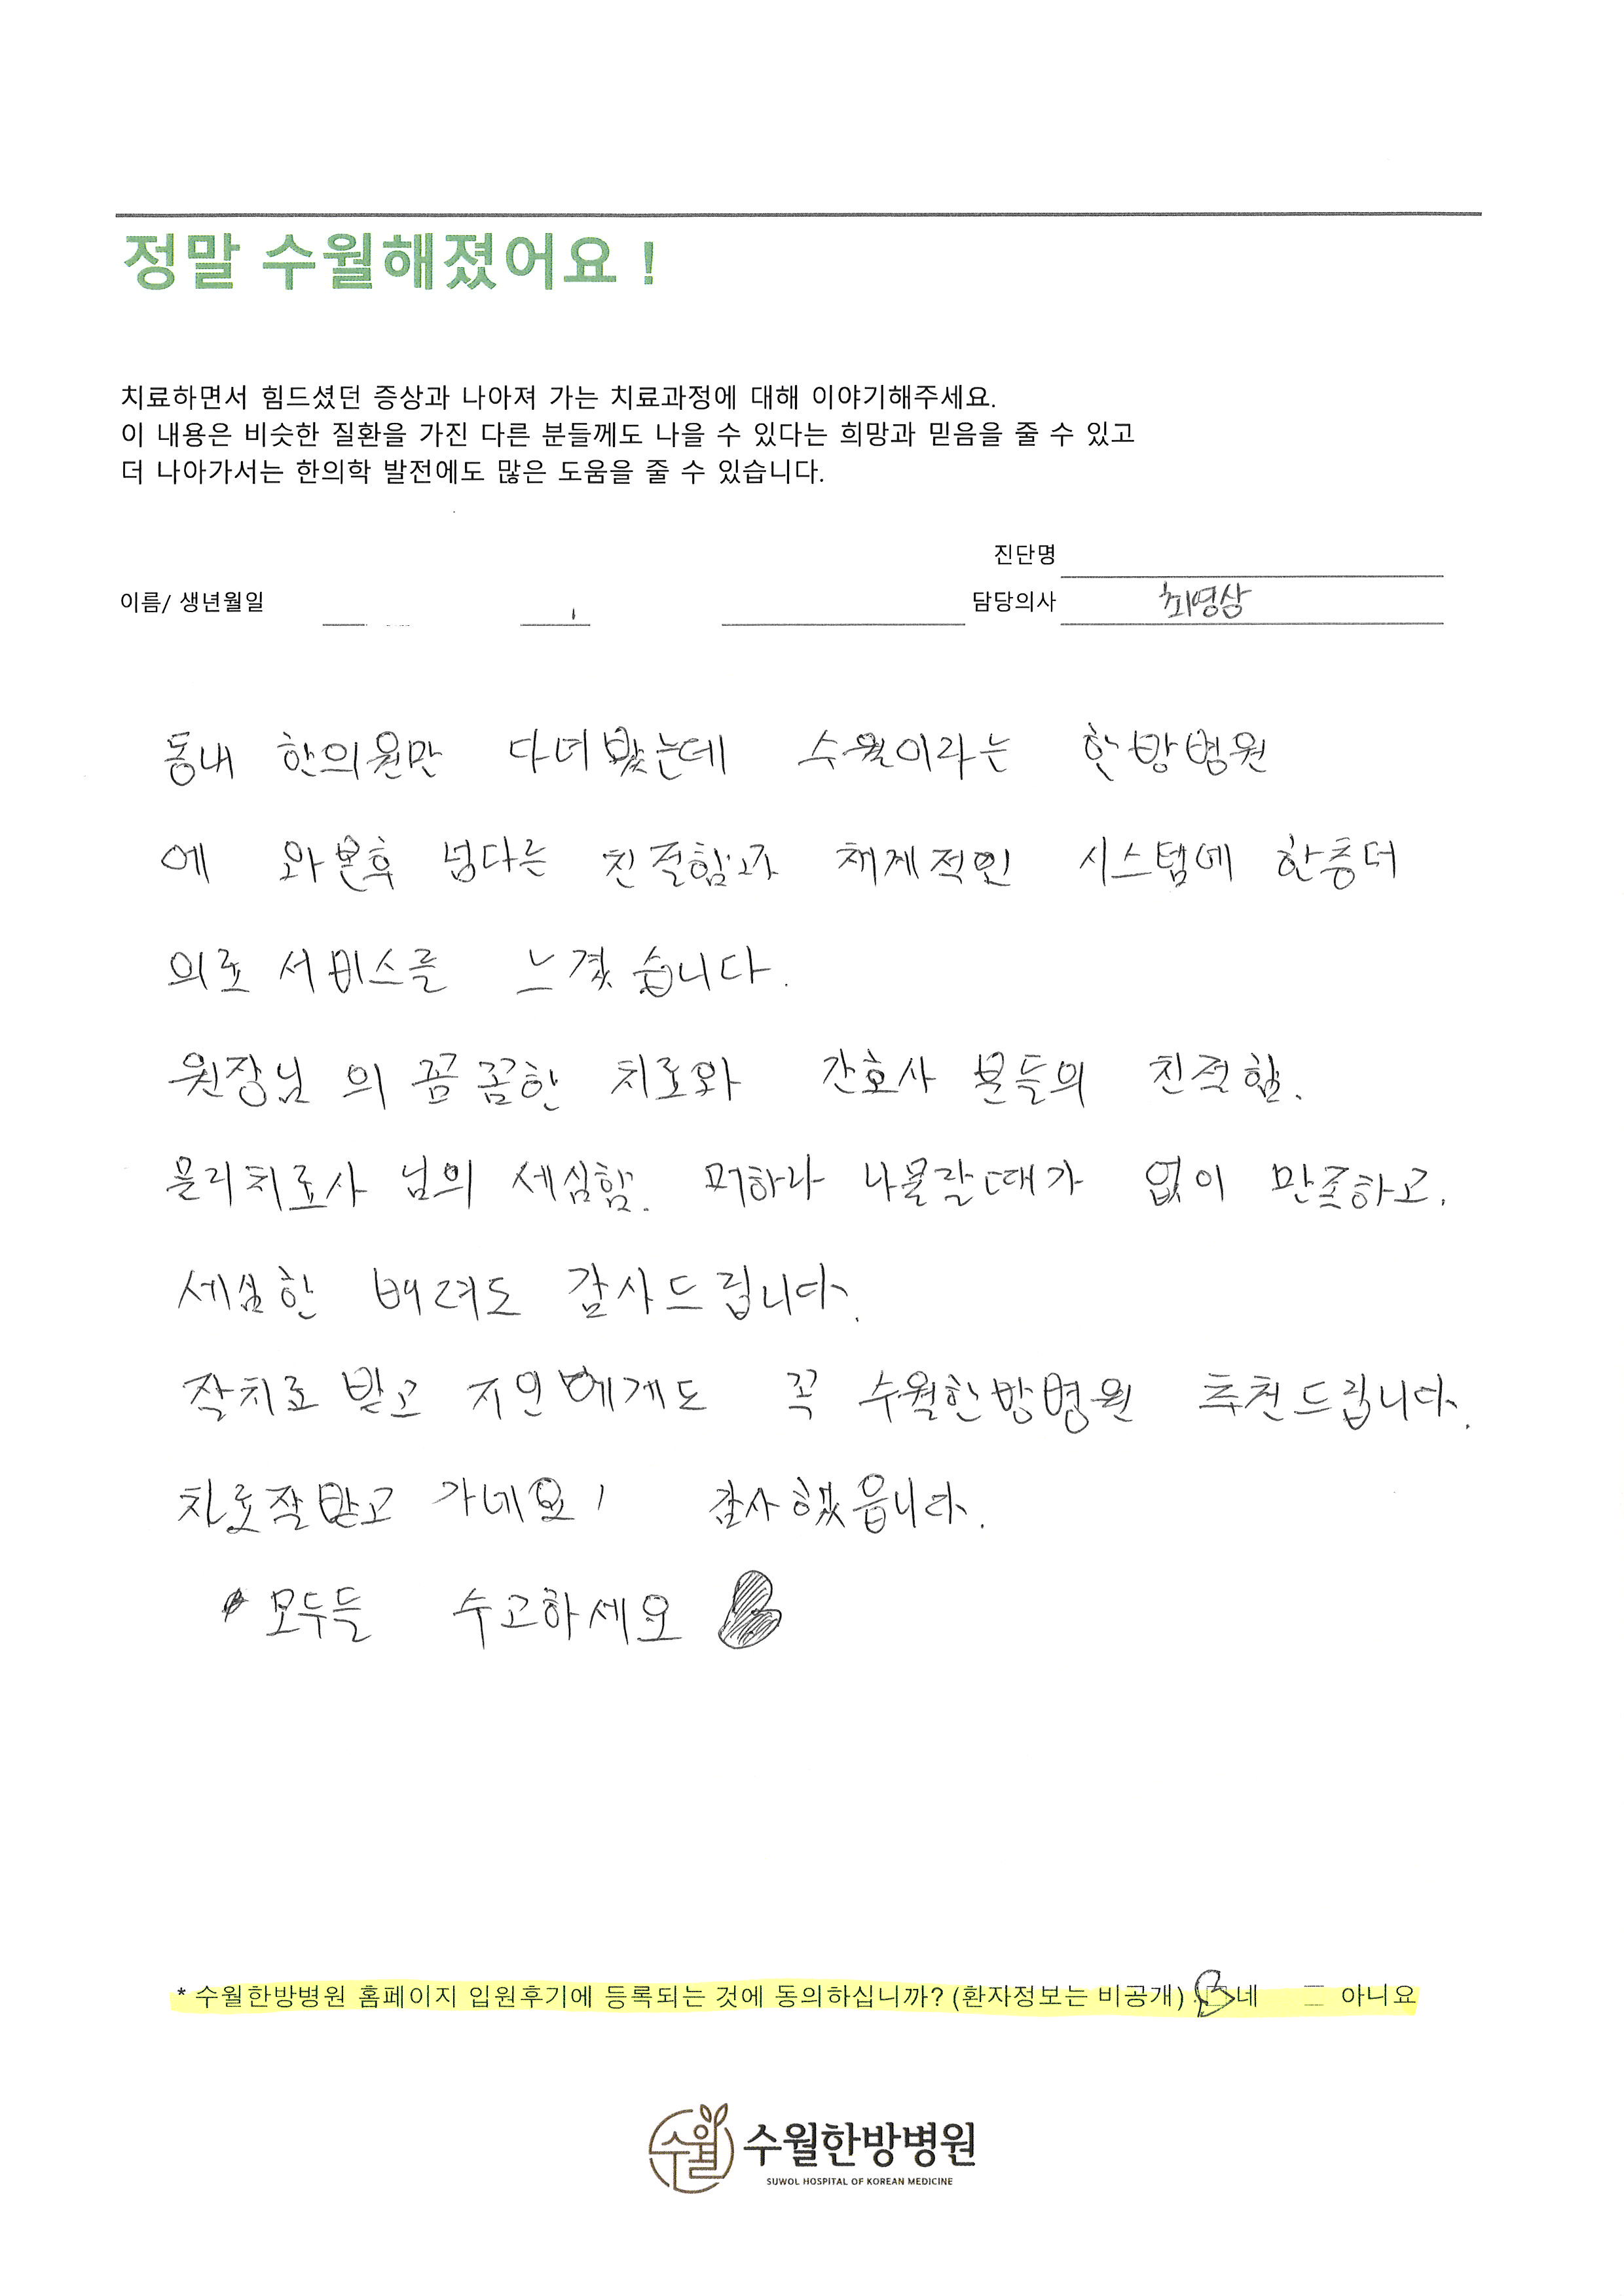 정말 수월해졌어요 !
치료하면서 힘드셨던 증상과 나아져 가는 치료과정에 대해 이야기해주세요.
이 내용은 비슷한 질환을 가진 다른 분들께도 나을 수 있다는 희망과 믿음을 줄 수 있고
더 나아가서는 한의학 발전에도 많은 도움을 줄 수 있습니다.
진단명
이름/ 생년월일 담당의사 최영상
동내 한의원만 다녀봤는데 수월이라는 한방병원
에 와본후 남다른 친절함과 체계적인 시스템에 한층더
의료 서비스를 느꼈습니다.
원장님 의 꼼꼼한 치료와 간호사 분들의 친절함.
물리치료사 님의 세심함. 머하나 나물랄때가 없이 만족하고.
세심한 배려도 감사드립니다.
잘치료 받고 지인에게도 꼭 수월한방병원 추천드립니다.
치료잘받고 가네요! 감사했읍니다.
모두들 수고하세요
* 수월한방병원 홈페이지 입원후기에 등록되는 것에 동의하십니까? (환자정보는 비공개) 네 아니요
수월 수월한방병원
SUWOL HOSPITAL OF KOREAN MEDICINE